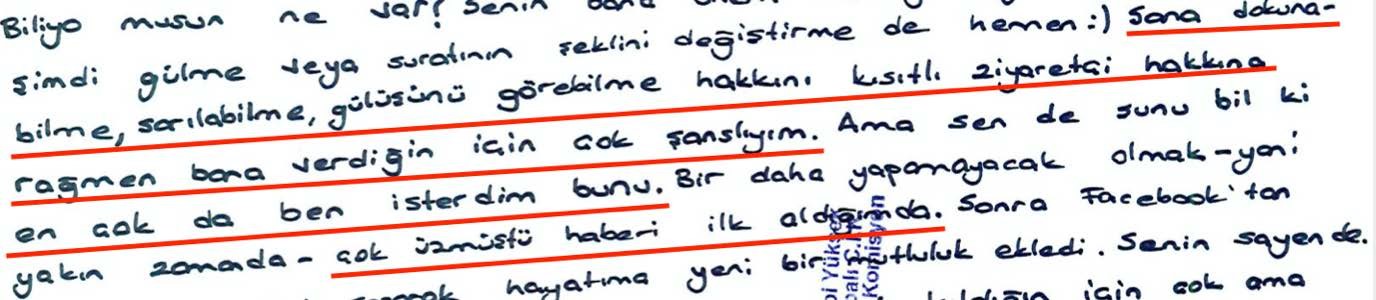 Biliyo musun ne var? Senin bana
şimdi gülme veya suratının şeklini değiştirme de hemen :) Sana dokuna-
bilme, sarılabilme, gülüşünü görebilme hakkını kısıtlı ziyaretçi hakkına
rağmen bana verdiğin için çok şanslıyım. Ama sen de şunu bil ki
en çok da ben isterdim bunu. Bir daha yapamayacak olmak-yani
yakın zamanda- çok üzmüştü haberi ilk aldığımda. Sonra Facebook'tan
hayatıma yeni bir mutluluk ekledi. Senin sayende.
için çok ama
Komisyon